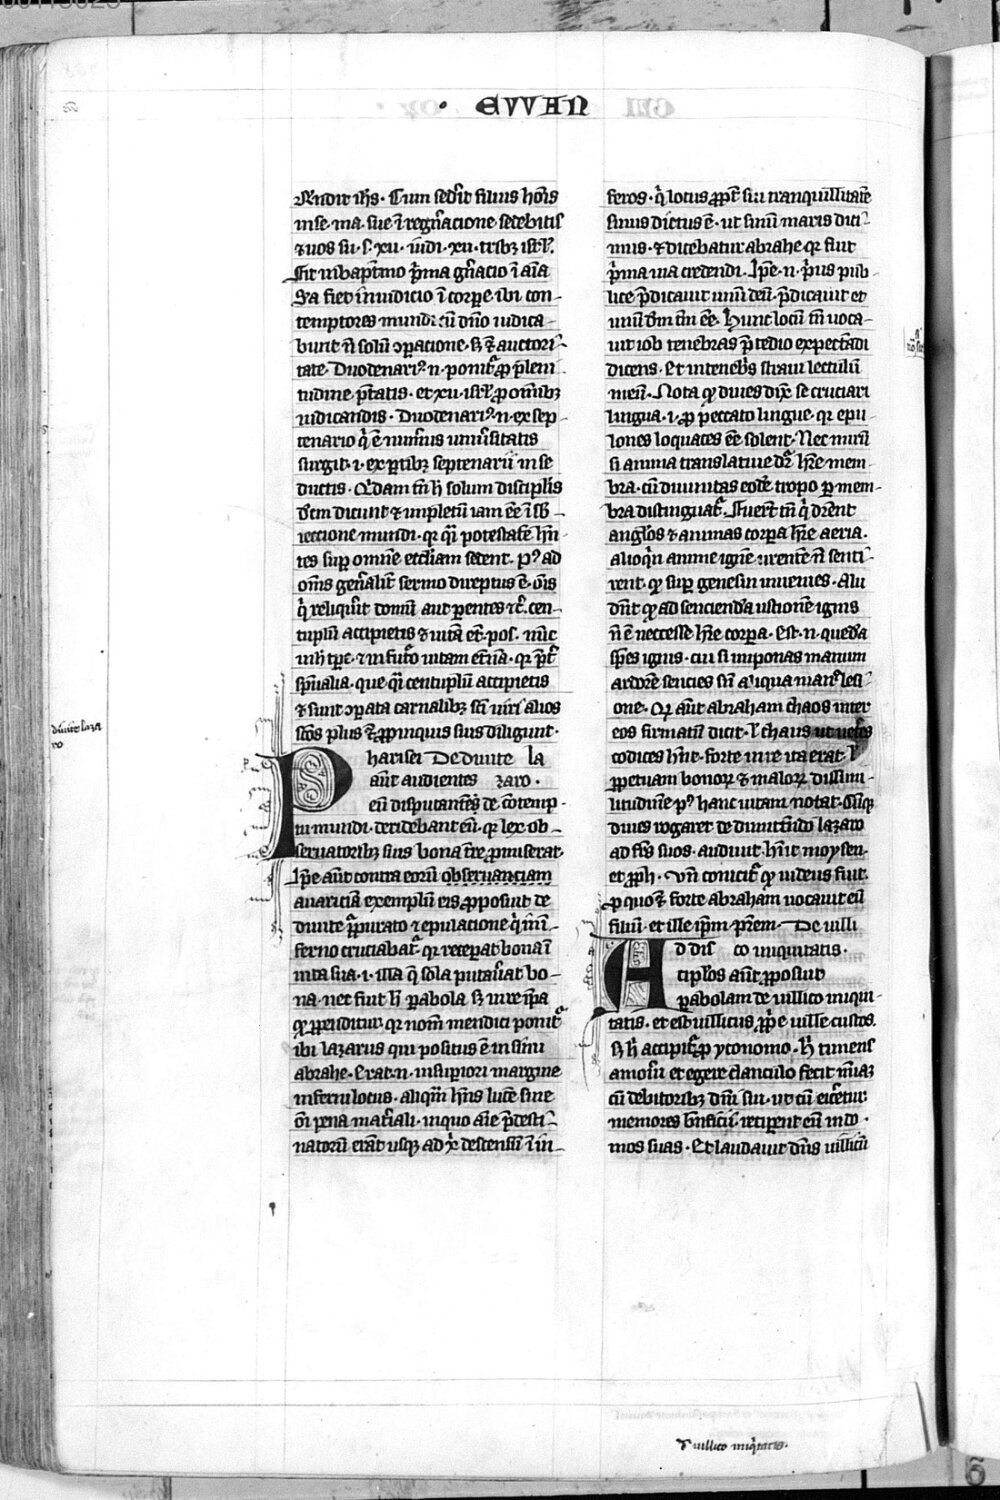 · EVVAN
Rñdit ih̄s · Cum sed'it filius hoīs
in se · ma · sue ī regn̄acione sedebitis
⁊ uos su · s · xii · iudi · xii · tribꝫ isrl'.
Sit ī baptismo p̄ma gn̄acio ī aīa
Ita fiet in iudicio ī corpe · ibi con-
temptores mundi cū dn̄o iudica-
bunt n̄ solū cōparatione · sꝫ ⁊ auctori-
tate · Duodenari⁹ · n · ponit̄ ꝓ pleni
tudine p̄tatis · et xii · isrl' ꝓ omībꝫ
iudicandis · Duodenari⁹ · n · ex sep-
tenario q̄ ē num̄us uniūsitatis
surgit · i · ex ptibꝫ septenarii in se
ductis · Q'dam tn̄ h̄ solum disciplis
dc̄m dicunt ⁊ impletū iam eē ī sb̄-
iectione mundi · qr q̄i potestatē hn̄-
tes sup omne eccl̄iam sedent · p⁹ ad
om̄s gen̄alit̄ sermo directus ē · oīs
q̄ reliquīt domū aut parentes ⁊c̄ · cen-
tuplū accipietis ⁊ uitā et̄ · pos · nūc
in h̄ tpe · ⁊ in futō uitam et̄nā · qr p̄t
sp̄ualia · que q̄i centuplū accipietis
⁊ sunt cōparata carnalibꝫ · sn̄ uiri alios
sc̄os plus q̄ ꝓpinquos suos diligunt ·
Pharisei De diuite la
aūt audientes zaro ·
eū disputantē de cōtemp-
tu mundi · deridebant eū · qr lex ob-
seruatoribꝫ suis bona tr̄e ꝓmiserat ·
Ipe aūt contra eorū obseruanciam
auaricia exemplū eis ꝓposuit de
diuite purpurato ⁊ epulatione q̄ in ī-
ferno cruciabat̄ · qr receperat bona ī
uita sua · i · illa q̄ sola putau̅at bo-
na · nec fuit h̄ parabola sꝫ in re ip̄a
qr nom̄ mendici ponit̄
ibi lazarus qui positus ē in sinu
abrahe · Erat · n · in supiori margine
inferni locus · aliqm̄ hn̄s lucē sine
oī pena mat̄iali · in quo aīe p̄desti-
natorū erāt usqꝫ ad x̄ descensū ī in-
feros · q̄ locus ꝓpt̄ sui tranquillitatē
sinus dictus ē · ut sinū maris dici-
mus · ⁊ dicebatur abrahe qr fuit
p̄ma uia credendi · Ipe · n · p̄us pub-
lice p̄dicauit unū deū · p̄dicauit et
unū dm̄ tm̄ eē · Hunc locū tn̄ uoca-
uit iob tenebras p̄ tedio expectādi
dicens · Et in tenebris straui lectulū
meū · Nota qꝫ diues dix̄ se cruciari
lingua · i · ꝓ peccato lingue · qr epu-
lones loquaces eē solent · Nec mirū
si anima translatiue dr̄ hr̄e mem-
bra · cū diuinitas eodē tropo p mem-
bra distinguat̄ · Fuer̄t tn̄ q̄ dicerēt
angl̄os ⁊ animas corpa hr̄e aeria ·
alioq̄n anime ignē urentē n̄ senti-
rent · qꝫ sup genesin inuenies · Alii
dn̄t qꝫ ad senciendā ustionē ignis
n̄ ē necesse hr̄e corpa · Est · n · quedā
sp̄es ignis · cui si imponas manum
ardorē sencies sn̄ aliqua man⁹ lesi-
one · Qr aūt abraham chaos inter
eos firmatū dicit · l' chaus ut uet̄es
codices hn̄t · forte in re ita erat · l'
ppetuam bonoꝝ ⁊ maloꝝ dissimi-
litudinē p⁹ hanc uitam notat · Cūqꝫ
diues rogaret de dimittendo lazaro
ad fr̄s suos · audiuit · hn̄t moysen ·
et ꝓph̄ · Vn̄ conicit̄ qꝫ iudeus fuit ·
ꝓ quo ⁊ forte abraham uocauit eū
filiū · et ille ip̄m · pr̄em · De uilli
Ad dis co iniquitatis ·
cipl̄os aūt ꝓposuit
parabolam de uillico iniqui-
tatis · et est uillicus ꝓp̄e uille custos ·
Sꝫ h̄ accipit̄ ꝓ yconomo · Hic timens
amoueri et egere clanculo fecit mīaꝫ
cū debitoribꝫ dn̄i sui · ut cū eicet̄ur
memores bn̄ficii · recipent eū in do-
mos suas · Et laudauit dn̄s uillicū
diuite laza
ro
de uillico iniq̄tatis ·